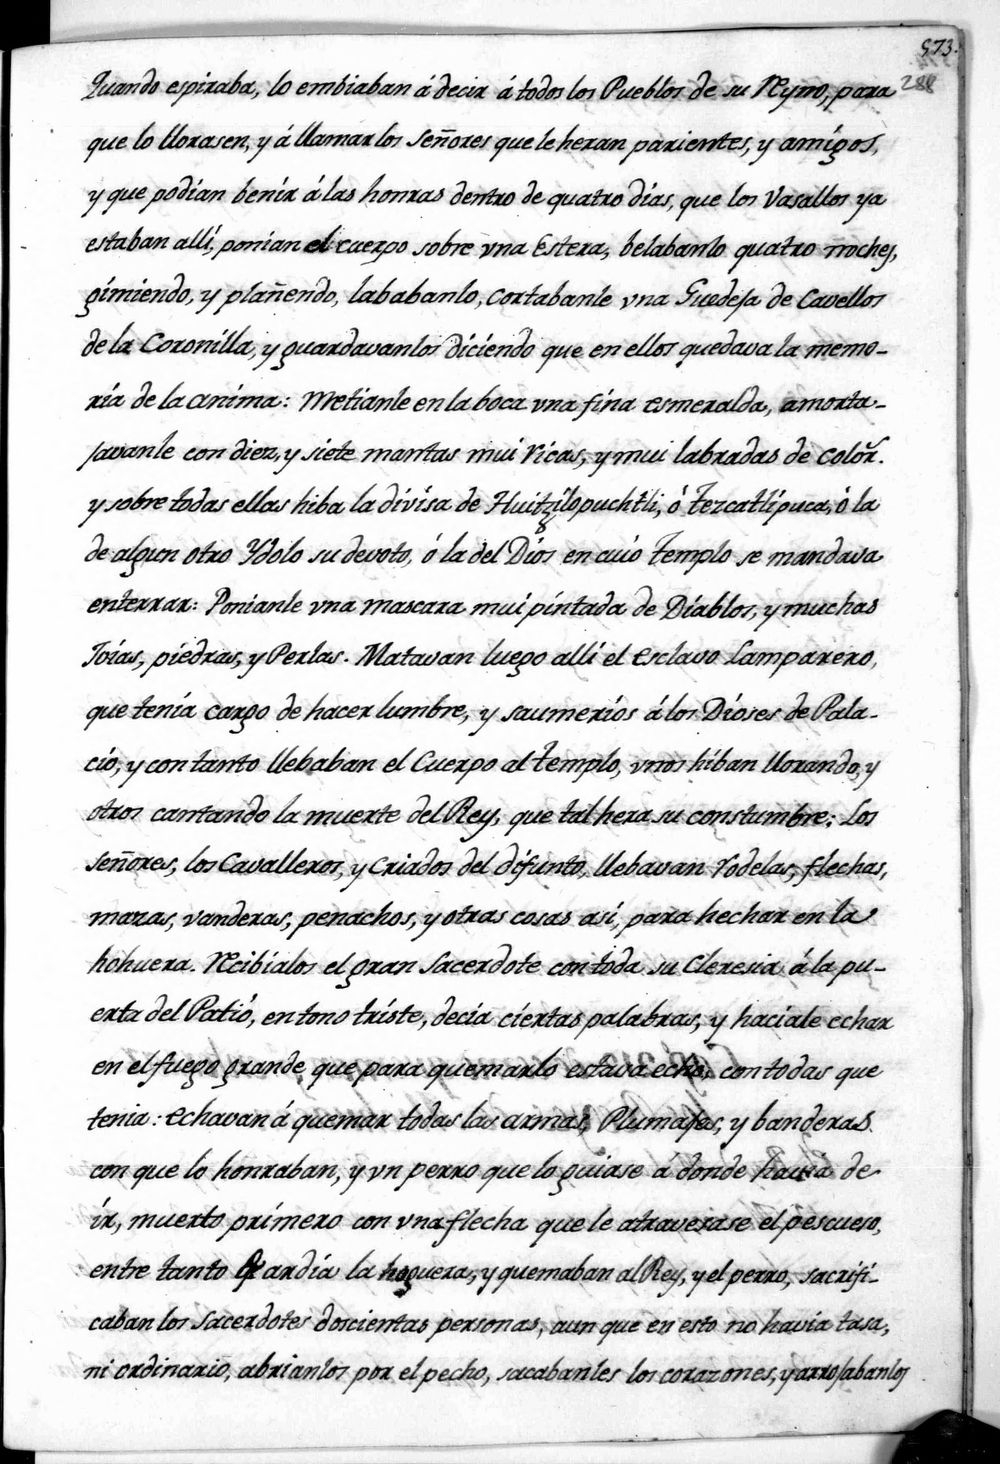 573.
288
Quando espiraba, lo embiaban á decir á todos los Pueblos de su Reyno, para
que lo llorasen, y á llamar los señores que le heran parientes, y amigos,
y que podian benir á las honras dentro de quatro dias, que los Vasallos ya
estaban allí, ponian el cuerpo sobre vna Estera, belabanlo quatro noches,
gimiendo, y plañendo, lababanlo, cortabanle vna Guedeja de Cavellos
de la Coronilla, y guardavanlos diciendo que en ellos quedava la memo-
ria de la anima: Metianle en la boca vna fina esmeralda, amorta-
javanle con diez, y siete mantas mui ricas, y mui labradas de color.
y sobre todas ellas hiba la divisa de Huitzilopuchtli, ó Tezcatlipuca, ó la
de algun otro Ydolo su devoto, ó la del Dios en cuio Templo se mandava
enterrar: Ponianle vna mascara mui pintada de Diablos, y muchas
Joias, piedras, y Perlas. Matavan luego allí el Esclavo Lamparero,
que tenia cargo de hacer lumbre, y saumerios á los Dioses de Pala-
cio, y con tanto llebaban el Cuerpo al Templo, vnos hiban llorando, y
otros cantando la muerte del Rey, que tal hera su constumbre: Los
Señores, los Cavalleros, y Criados del difunto, llebavan rodelas, flechas,
mazas, vanderas, penachos, y otras cosas asi, para hechar en la
hohuera. Recibialos el gran Sacerdote con toda su Cleresia á la pu-
erta del Patio, en tono triste, decia ciertas palabras, y haciale echar
en el fuego grande, que para quemarlo estava echo, con todas que
tenia: echavan á quemar todas las armas, Plumajes, y banderas
con que lo honraban, y vn perro que lo guiase á donde havia de
ir, muerto primero con vna flecha que le atravesase el pescueso,
entre tanto que ardia la hoguera, y quemaban al Rey, y el perro, sacrifi-
caban los Sacerdotes doscientas personas, aun que en esto no havia tasa,
ni ordinario, abrianlos por el pecho, sacabanles los corazones, y arrojabanlos